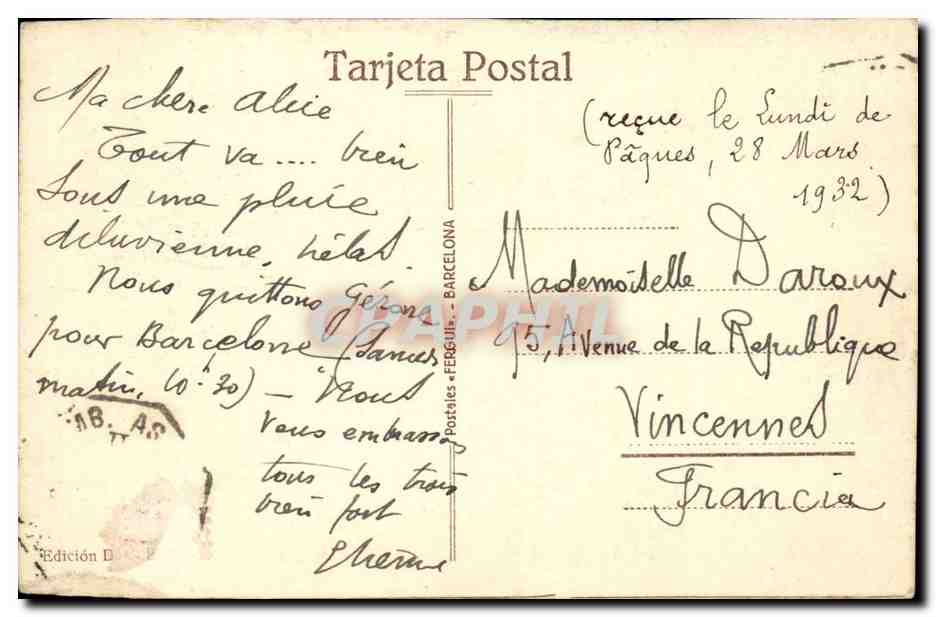 Tarjeta Postal
Ma chere Alice
Tout va .... bien
sous une pluie
diluvienne, hélas.
Nous quittons Gérone
pour Barcelone (Samedi
matin, 10h 30) — Nous
vous embrassons
tous les trois
bien fort
Postales «FERGUI». - BARCELONA
(reçue le Lundi de
Pâques, 28 Mars
1932)
Mademoiselle Daroux
95, Avenue de la République
Vincennes
Francia
AMB. AS
Edición D
CPAPHIL